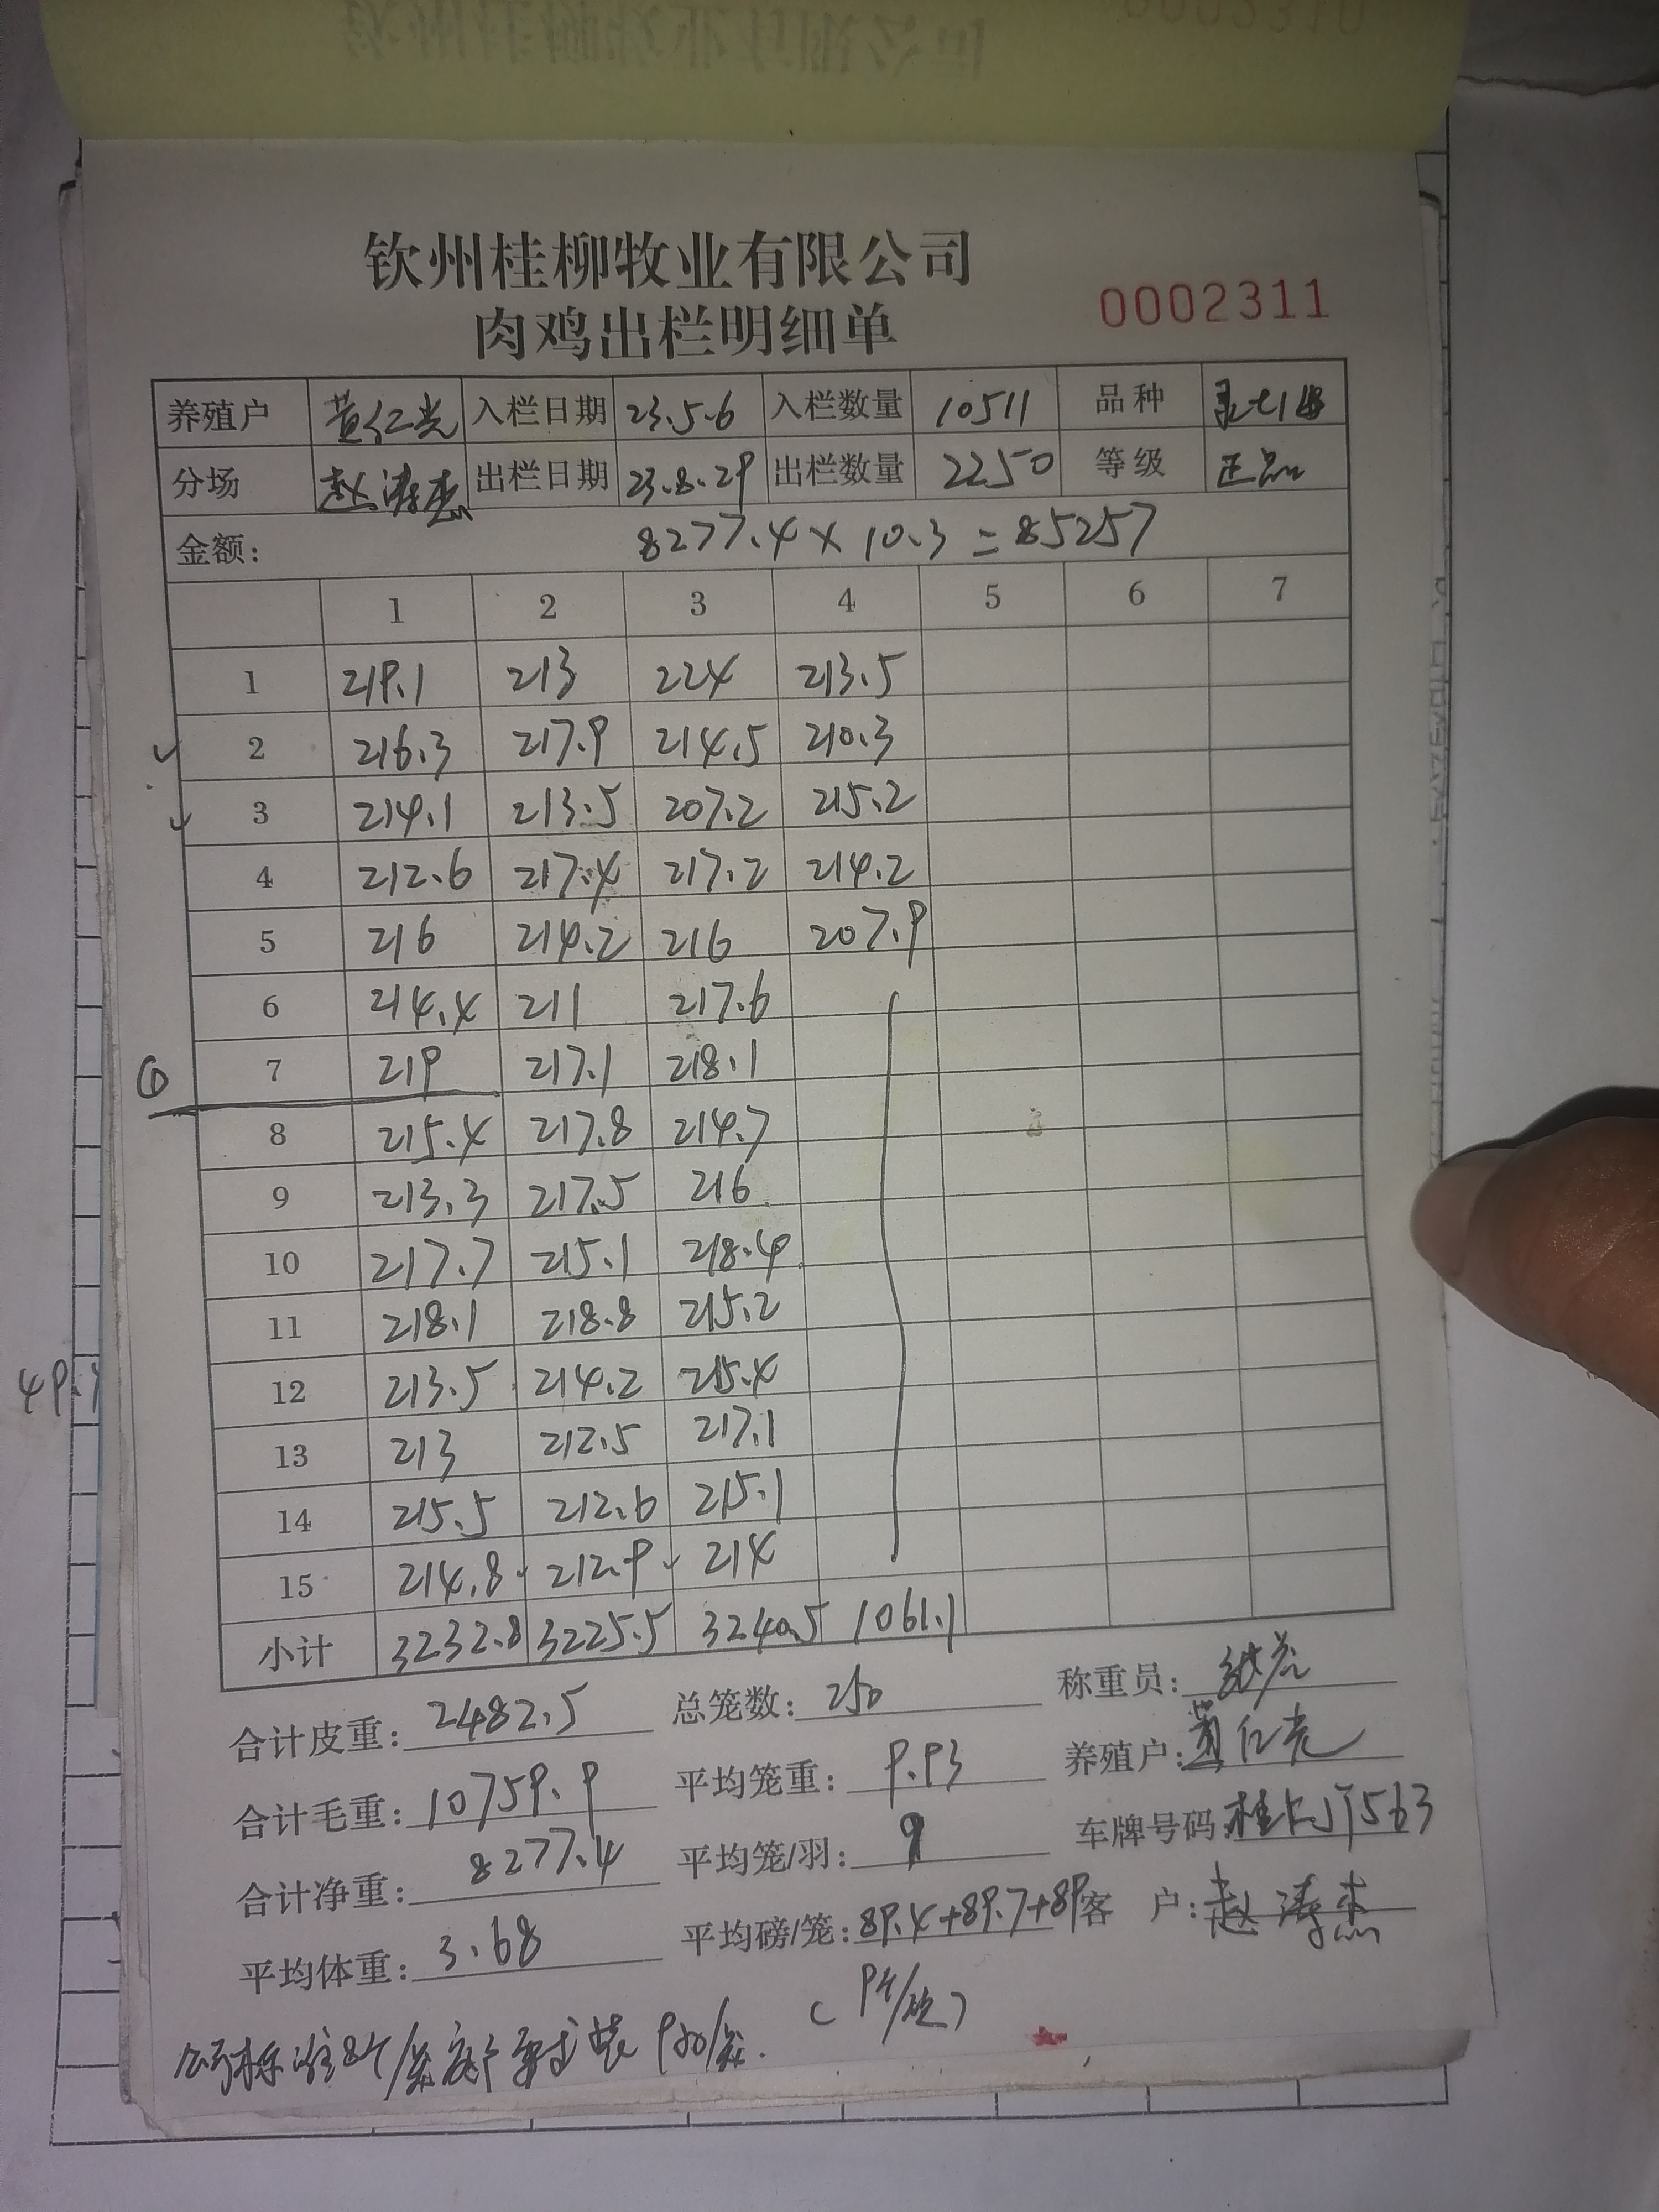 钦州桂柳牧业有限公司
肉鸡出栏明细单
0002311
养殖户 黄仁光 入栏日期 23.5.6 入栏数量 10511 品种
分场 赵涛杰 出栏日期 23.8.29 出栏数量 2250 等级 正品
金额: 8277.4×10.3=85257
1 2 3 4 5 6 7
1 219.1 213 224 213.5
2 216.3 217.9 214.5 210.3
3 214.1 213.5 207.2 215.2
4 212.6 217.4 217.2 214.2
5 216 214.2 216 207.9
6 214.4 211 217.6
7 219 217.1 218.1
8 215.4 217.8 214.7
9 213.3 217.5 216
10 217.7 215.1 218.4
11 218.1 218.8 215.2
12 213.5 214.2 215.4
13 213 212.5 217.1
14 215.5 212.6 215.1
15 214.8 212.9 214
小计 3232.8 3225.5 3240.5 1061.1
合计皮重: 2482.5 总笼数: 250 称重员:
合计毛重: 10759.9 平均笼重: 9.93 养殖户: 黄仁光
合计净重: 8277.4 平均笼/羽: 9 车牌号码:
平均体重: 3.68 平均磅/笼: 89.4+89.7+89 客 户: 赵涛杰